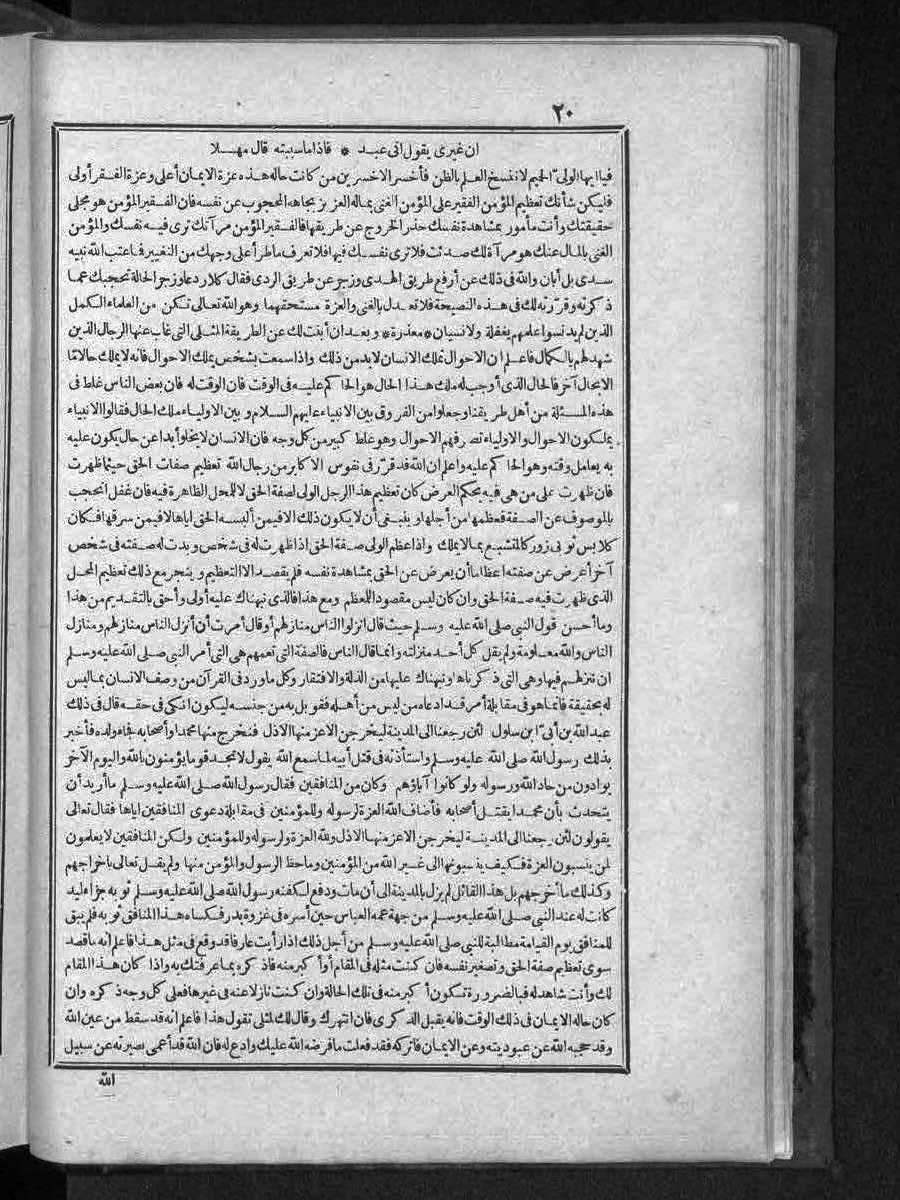 ٢٠
ان غيرى يقول انى عبد * فاذا ماسببته قال مهلا
فيا ايها الولى الحيم لا تنسخ العلم بالظن فأخسر الاخسرين من كانت حاله هذه عزة الايمان أعلى وعزة الفقر أولى
فليكن شأنك تعظيم المؤمن الفقير على المؤمن الغنى بماله العزيز بجاهه المحجوب عن نفسه فان الفقير المؤمن هو مجلى
حقيقتك وأنت مأمور بمشاهدة نفسك حذر الخروج عن طريقها فالفقير المؤمن مرآتك ترى فيه نفسك والمؤمن
الغنى بالمال عنك هو مرآة لك صدئت فلا ترى نفسك فيها فلا تعرف ما طرأ على وجهك من التغيير فما عتب الله نبيه
سدى بل أبان والله فى ذلك عن أرفع طريق الهدى وزجر عن طريق الردى فقال كلا ردعا وزجرا لحالة تحجبك عما
ذكرته وقرّرته لك فى هذه النصيحة فلا تعدل بالغنى والعزة مستحقهما وهو الله تعالى تكن من العلماء الكمل
الذين لم يدنسوا علمهم بغفلة ولا نسيان * معذرة * وبعد ان أبنت لك عن الطريقة المثلى التى غاب عنها الرجال الذين
شهد لهم بالكمال فاعلم ان الاحوال تملك الانسان لابد من ذلك واذا سمعت بشخص يملك الاحوال فانه لا يملك حالا ما
الا بحال آخر فالحال الذى أوجب له ملك هذا الحال هو الحاكم عليه فى الوقت فان الوقت له فان بعض الناس غلط فى
هذه المسئلة من أهل طريقنا وجعلوا من الفروق بين الانبياء عليهم السلام وبين الاولياء ملك الحال فقالوا الانبياء
يملكون الاحوال والاولياء تصرفهم الاحوال وهو غلط كبير من كل وجه فان الانسان لا يخلو أبدا عن حال يكون عليه
به يعامل وقته وهو الحاكم عليه واعلم ان الله قد قرّر فى نفوس الاكابر من رجال الله تعظيم صفات الحق حيثما ظهرت
فان ظهرت على من هى فيه بحكم العرض كان تعظيم هذا الرجل الولى لصفة الحق لا للمحل الظاهرة فيه فان غفل انحجب
بالموصوف عن الصفة فعظمها من أجلها وينبغى أن لا يكون ذلك الا فيمن ألبسه الحق اياها لا فيمن سرقها فكان
كلابس ثوبى زور كالمتشبع بما لا يملك واذا عظم الولى صفة الحق اذا ظهرت له فى شخص وبدت له صفته فى شخص
آخر أعرض عن صفته اعظاما أن يعرض عن الحق بمشاهدة نفسه فلم يقصد الا التعظيم وينجر مع ذلك تعظيم المحل
الذى ظهرت فيه صفة الحق وان كان ليس مقصودا للمعظم ومع هذا فالذى نبهناك عليه أولى وأحق بالتقديم من هذا
وما أحسن قول النبى صلى الله عليه وسلم حيث قال انزلوا الناس منازلهم أو قال أمرت أن أنزل الناس منازلهم ومنازل
الناس والله معلومة ولم يقل كل أحد منزلته وانما قال الناس فالصفة التى تعمهم هى التى أمر النبى صلى الله عليه وسلم
ان ننزلهم فيها وهى التى ذكرناها ونبهناك عليها من الذلة والافتقار وكل ما ورد فى القرآن من وصف الانسان بما ليس
له بحقيقة فانما هو فى مقابلة أمر قد ادعاه من ليس من أهله فقوبل به من جنسه ليكون انكى فى حقه قال فى ذلك
عبد الله بن أبىّ ابن سلول لئن رجعنا الى المدينة ليخرجن الاعز منها الاذل فنخرج منها محمدا وأصحابه فجاء ولده فأخبر
بذلك رسول الله صلى الله عليه وسلم واستأذنه فى قتل أبيه لما سمع الله يقول لا تجد قوما يؤمنون بالله واليوم الآخر
يوادون من حاد الله ورسوله ولو كانوا آباؤهم وكان من المنافقين فقال رسول الله صلى الله عليه وسلم ما أريد أن
يتحدث بأن محمدا يقتل أصحابه فأضاف الله العزة لرسوله وللمؤمنين فى مقابلة دعوى المنافقين اياها فقال تعالى
يقولون لئن رجعنا الى المدينة ليخرجن الاعز منها الاذل ولله العزة ولرسوله وللمؤمنين ولكن المنافقين لا يعلمون
لمن ينسبون العزة فكيف ينسبونها الى غير الله من المؤمنين وما حظ الرسول والمؤمن منها ولم يقل تعالى باخراجهم
وكذلك ما أخرجهم بل هذا القائل لم يزل بالمدينة الى أن مات ودفع لكفنه رسول الله صلى الله عليه وسلم ثوبه جزاء ليد
كانت له عند النبى صلى الله عليه وسلم من جهة عمه العباس حين أسره فى غزوة بدر فكساه هذا المنافق ثوبه فلم يبق
للمنافق يوم القيامة مطالبة للنبى صلى الله عليه وسلم من أجل ذلك اذا رأيت عارفا قد وقع فى مثل هذا فاعلم انه ما قصد
سوى تعظيم صفة الحق وتصغير نفسه فان كنت مثله فى المقام أو أكبر منه فذكره بما عرفتك به واذا كان هذا المقام
لك وأنت شاهد له فبالضرورة تكون أكبر منه فى تلك الحالة وان كنت نازلا عنه فى غيرها فعلى كل وجه ذكره وان
كان حاله الايمان فى ذلك الوقت فانه يقبل الذكرى فان انتهرك وقال لك لمثلى تقول هذا فاعلم انه قد سقط من عين الله
وقد حجبه الله عن عبوديته وعن الايمان فاتركه فقد فعلت ما فرضه الله عليك وادع له فان الله قد أعمى بصيرته عن سبيل
الله